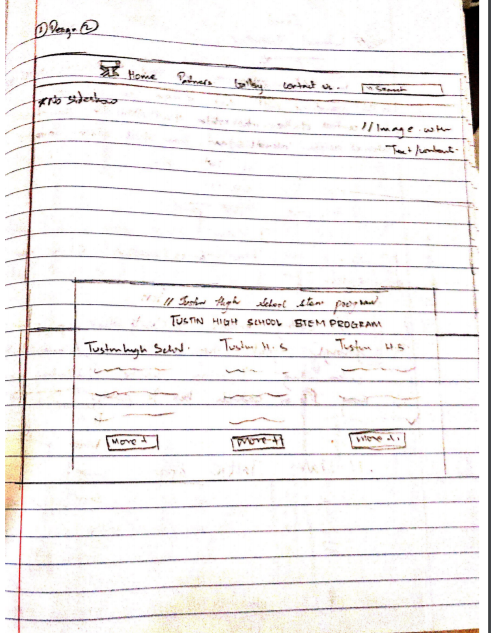 ① Design ②
Home Partners Gallery Contact us. " Search
* No slideshow
// Image with
Text/content.
// Tustin High School Stem program
TUSTIN HIGH SCHOOL STEM PROGRAM
Tustin high School. Tustin H.S Tustin H.S.
More + More + More +